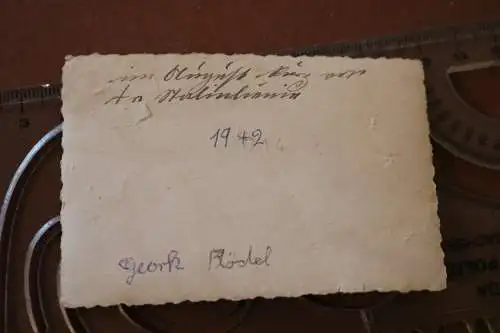 im August kurz vor
der Stalinlinie
1942
Geork Rödel